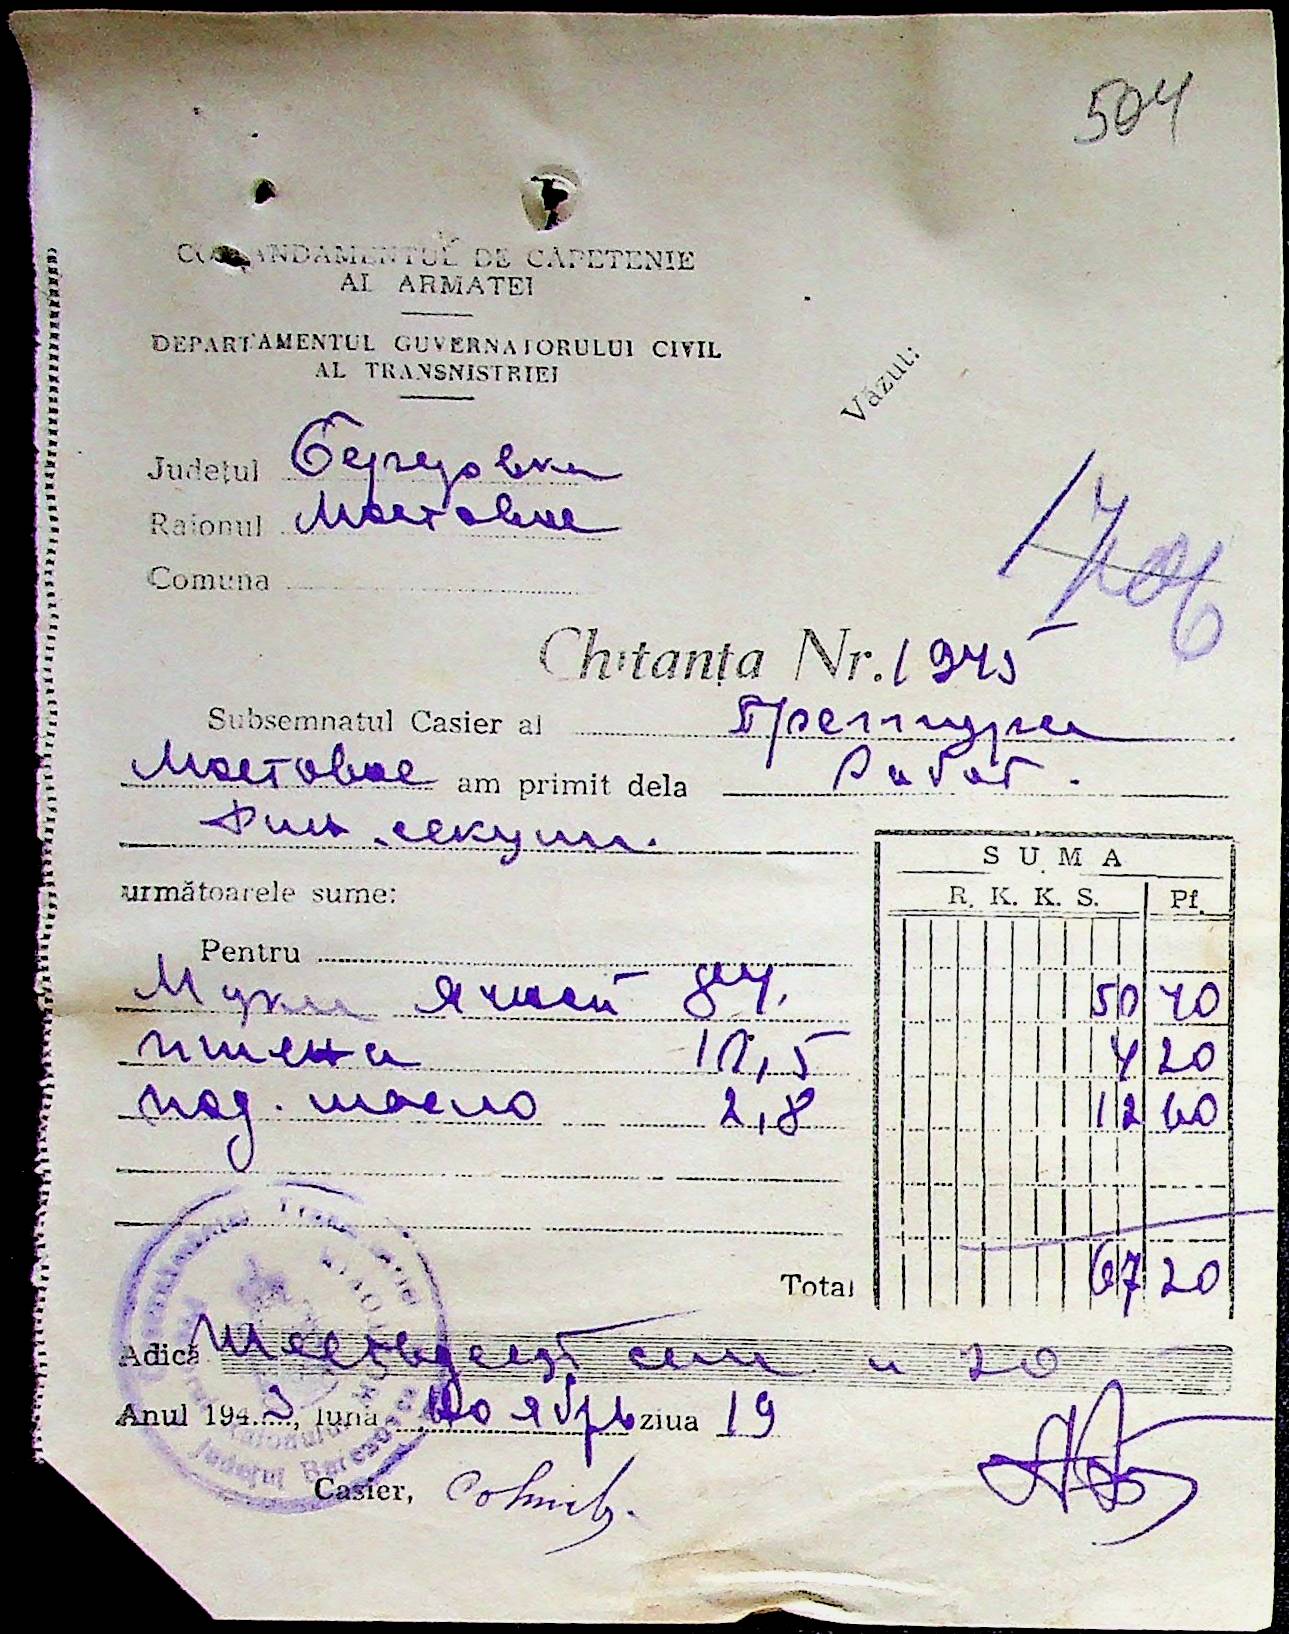 504
COMANDAMENTUL DE CAPETENIE
AL ARMATEI
DEPARTAMENTUL GUVERNATORULUI CIVIL
AL TRANSNISTRIEI
Văzut:
Județul Березовка
Raionul Мостовое
Comuna
Chitanța Nr. 1945
Subsemnatul Casier al Претуры
Мостовое am primit dela Работ.
Фин. секции.
următoarele sume:
SUMA
R. K. K. S. Pf.
Pentru
Муки ячной 84. 50 40
пшена 4 20
под. масло 2,8 12 60
Total 67 20
Adică Шестьдесят семь и 20
Anul 1943, luna Ноябрь ziua 19
Casier,
Județul